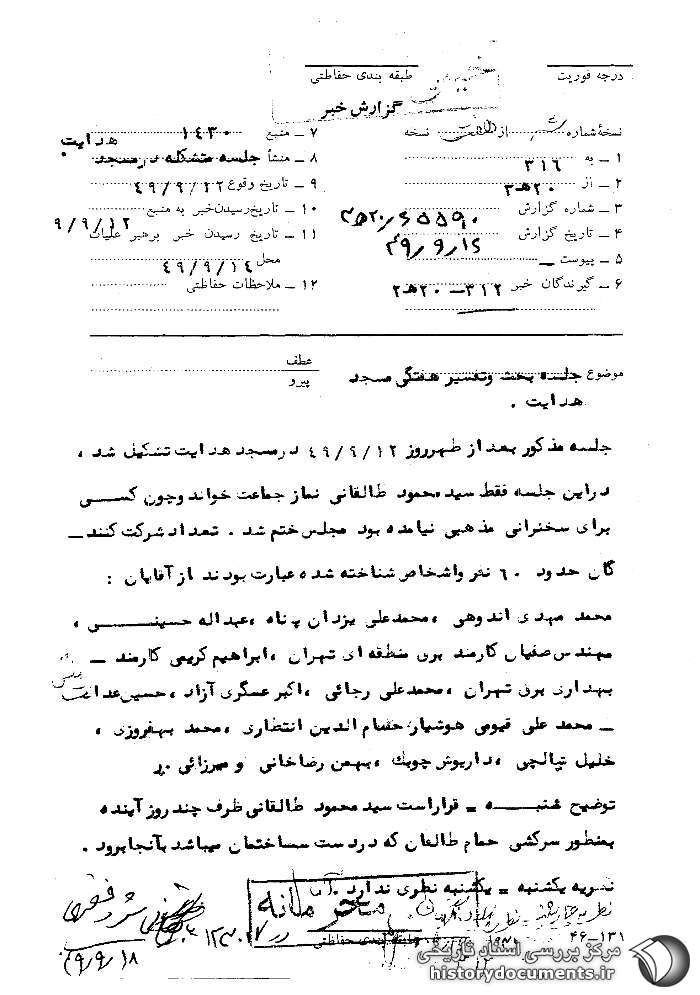 درجه فوریت
طبقه بندی حفاظتی
گزارش خبر
نسخهٔ شماره از نسخه
۱ ـ به ۳۱۶
۲ ـ از ۲۰ هـ ۳
۳ ـ شماره گزارش
۴ ـ تاریخ گزارش ۴۹/۹/۱۶
۵ ـ پیوست ـ
۶ ـ گیرندگان خبر ۳۱۲ ـ ۲۰ هـ ۲
۷ ـ منبع ۱۴۳۰
۸ ـ منشأ جلسه متشکله در مسجد هدایت
۹ ـ تاریخ وقوع ۴۹/۹/۱۲
۱۰ ـ تاریخ رسیدن خبر به منبع ۹/۹/۱۲
۱۱ ـ تاریخ رسیدن خبر برهبر عملیات
محل ۴۹/۹/۱۴
۱۲ ـ ملاحظات حفاظتی
عطف
پیرو
موضوع جلسه بحث و تفسیر هفتگی مسجد
هدایت .
جلسه مذکور بعد از ظهر روز ۴۹/۹/۱۲ در مسجد هدایت تشکیل شد ،
در این جلسه فقط سید محمود طالقانی نماز جماعت خواند و چون کسی
برای سخنرانی مذهبی نیامده بود مجلس ختم شد . تعداد شرکت کنند ـ
گان حدود ۶۰ نفر و اشخاص شناخته شده عبارت بودند از آقایان :
محمد مهدی اندوهی ، محمد علی یزدان پناه ، عبداله حسینی ،
مهندس صفیان کارمند برق منطقه ای تهران ، ابراهیم کریمی کارمند ـ
بهداری برق تهران ، محمد علی رجائی ، اکبر عسگری آزاد ، حسین عدالت
ـ محمد علی قیومی هوشیار ، حسام الدین انتظاری ، محمد بهفروزی ،
خلیل تپالچی ، داریوش چوبک ، بهمن رضاخانی و میرزائی
توضیح شنبه ـ قرار است سید محمود طالقانی ظرف چند روز آینده
بمنظور سرکشی حمام طالقان که در دست ساختمان میباشد بآنجا برود .
نظریه یکشنبه ـ یکشنبه نظری ندارد .
محرمانه
طبقه بندی حفاظتی
۴۶-۱۳۱
۴۹/۹/۱۸
مرکز بررسی اسناد تاریخی
historydocuments.ir